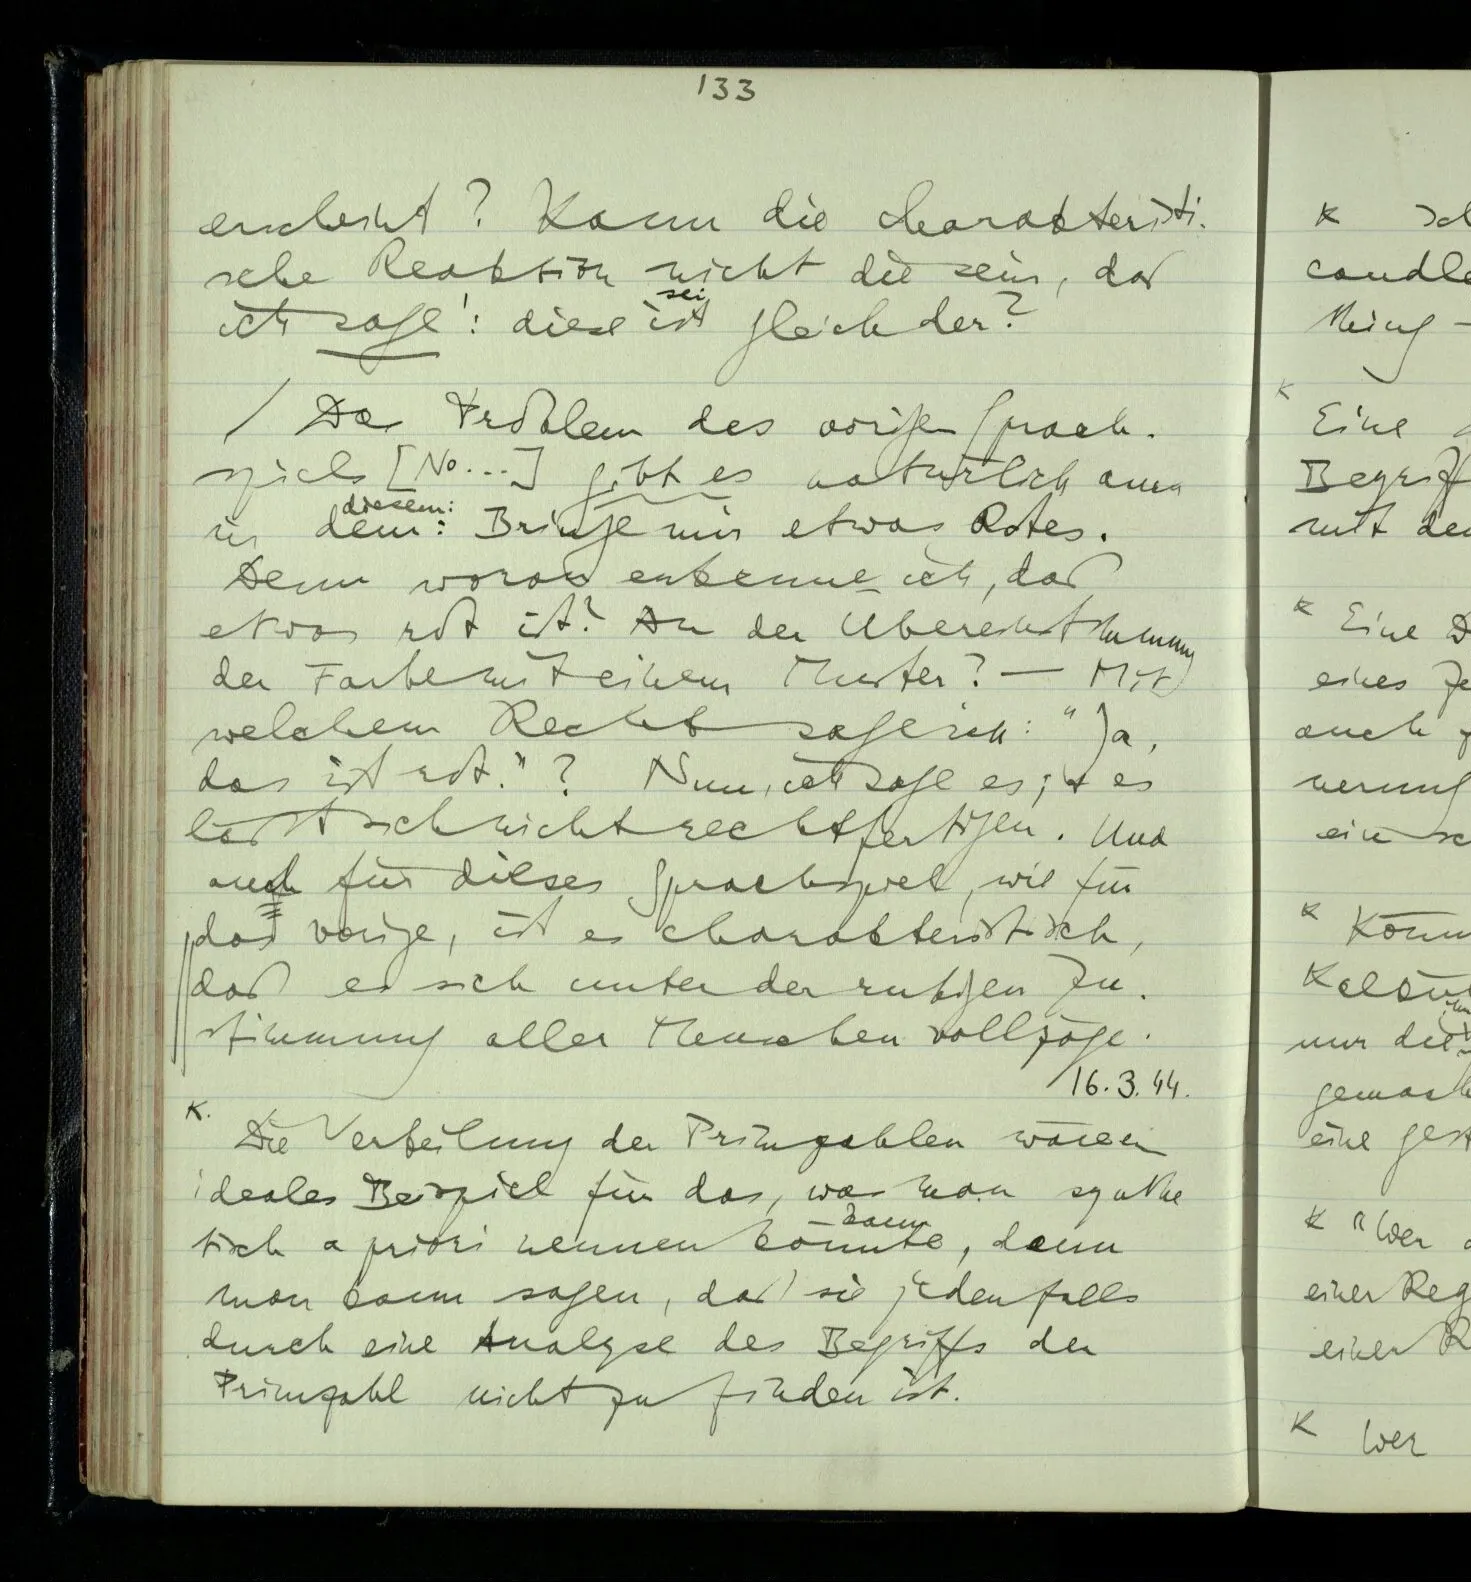 133
erscheint? Kann die charakteristi-
sche Reaktion nicht die sein, daß
sei
ich sage: diese ist gleich der?
/ Das Problem des vorigen Sprach-
spiels [No...] gibt es natürlich auch
diesem:
in dem: Bringe mir etwas Rotes.
Denn woran erkenne ich, daß
etwas rot ist? An der Übereinstimmung
der Farbe mit einem Muster? — Mit
welchem Recht sage ich: "Ja,
das ist rot."? Nun, ich sage es; & es
läßt sich nicht rechtfertigen. Und
auch für dieses Sprachspiel, wie für
das vorige, ist es charakteristisch,
daß es sich unter der ruhigen Zu-
stimmung aller Menschen vollzöge.
16.3.44.
K. Die Verteilung der Primzahlen wäre ein
ideales Beispiel für das, was man synthe
kann
tisch a priori nennen könnte, denn
man kann sagen, daß sie jedenfalls
durch eine Analyse des Begriffs der
Primzahl nicht zu finden ist.
K
candle
thing –
K Eine
Begriff
mit
K Eine
eines
auch
ein
K
nur die
eine
K "Wer
einer Reg
einer R
K Wer